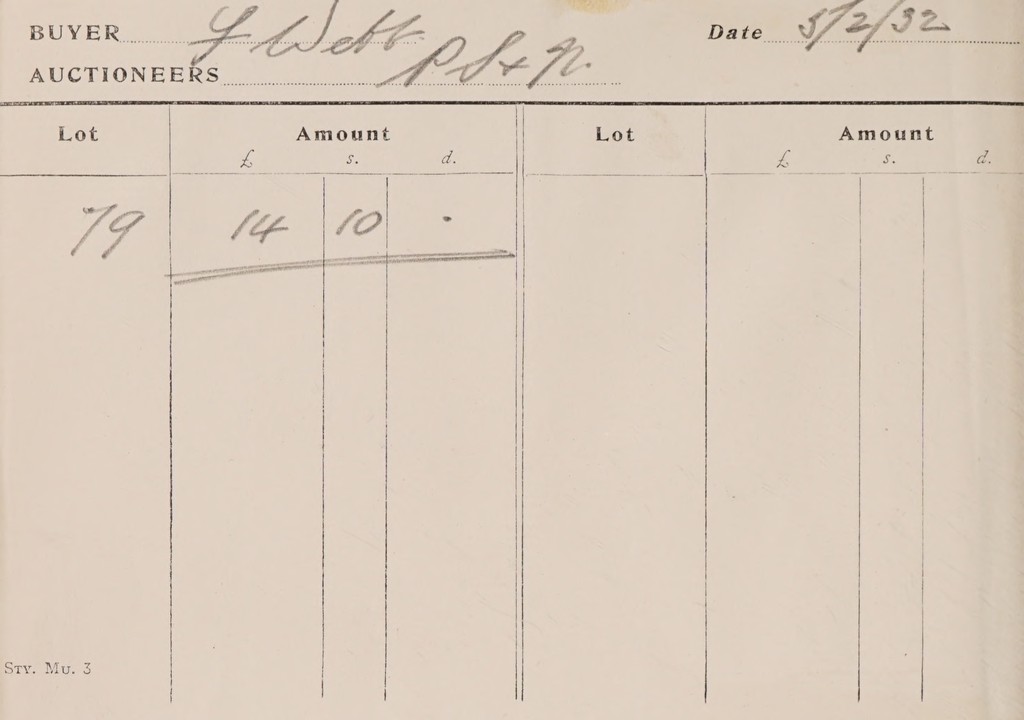 BUYER F Webb Date 5/2/32
AUCTIONEERS P S & N.
Lot Amount Lot Amount
£ s. d. £ s. d.
79 14 10 .
STY. MU. 3